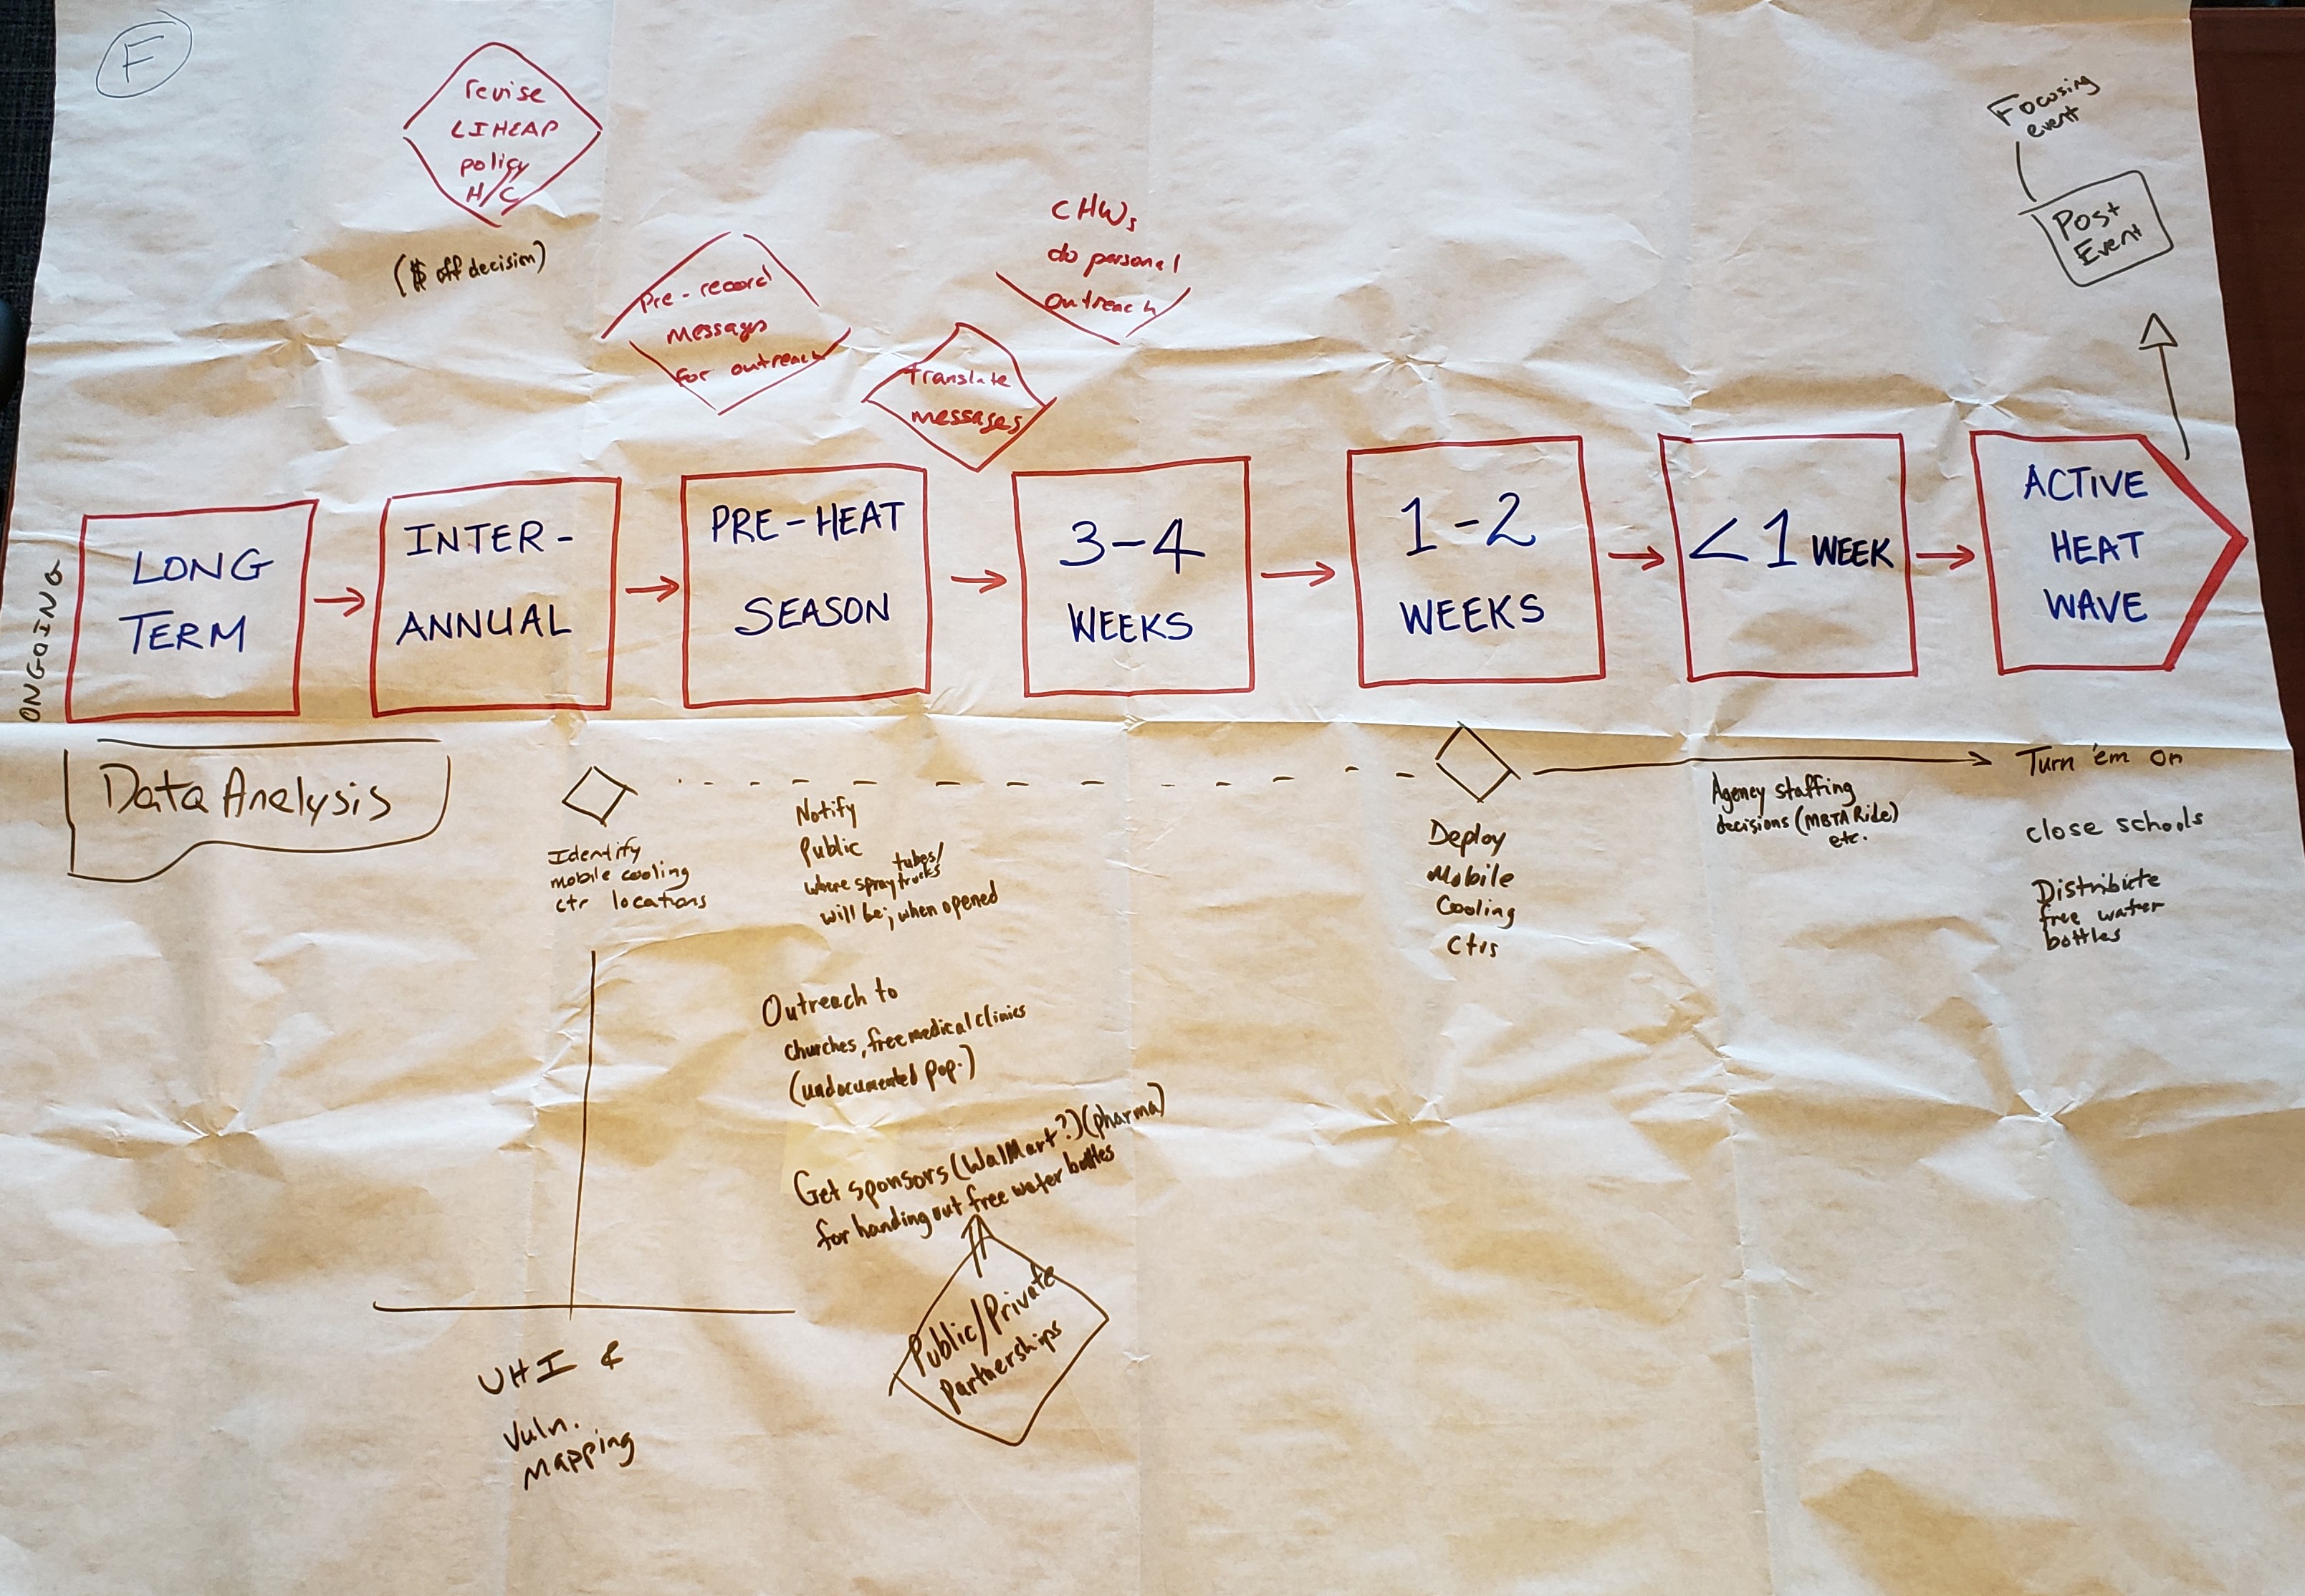 F
revise
LIHEAP
policy
H/C
($ off decision)
Pre-record
messages
for outreach
Translate
messages
CHWs
do personal
outreach
Focusing
event
Post
Event
ONGOING
LONG
TERM
INTER-
ANNUAL
PRE-HEAT
SEASON
3-4
WEEKS
1-2
WEEKS
<1 WEEK
ACTIVE
HEAT
WAVE
Data Analysis
Identify
mobile cooling
ctr locations
Notify
Public
tubes/
where spray trucks
will be; when opened
Deploy
Mobile
Cooling
Ctrs
Agency staffing
decisions (MBTA Ride)
etc.
Turn 'em on
close schools
Distribute
free water
bottles
Outreach to
churches, free medical clinics
(undocumented pop.)
Get sponsors (WalMart?) (pharma)
for handing out free water bottles
Public/Private
Partnerships
UHI &
Vuln.
mapping